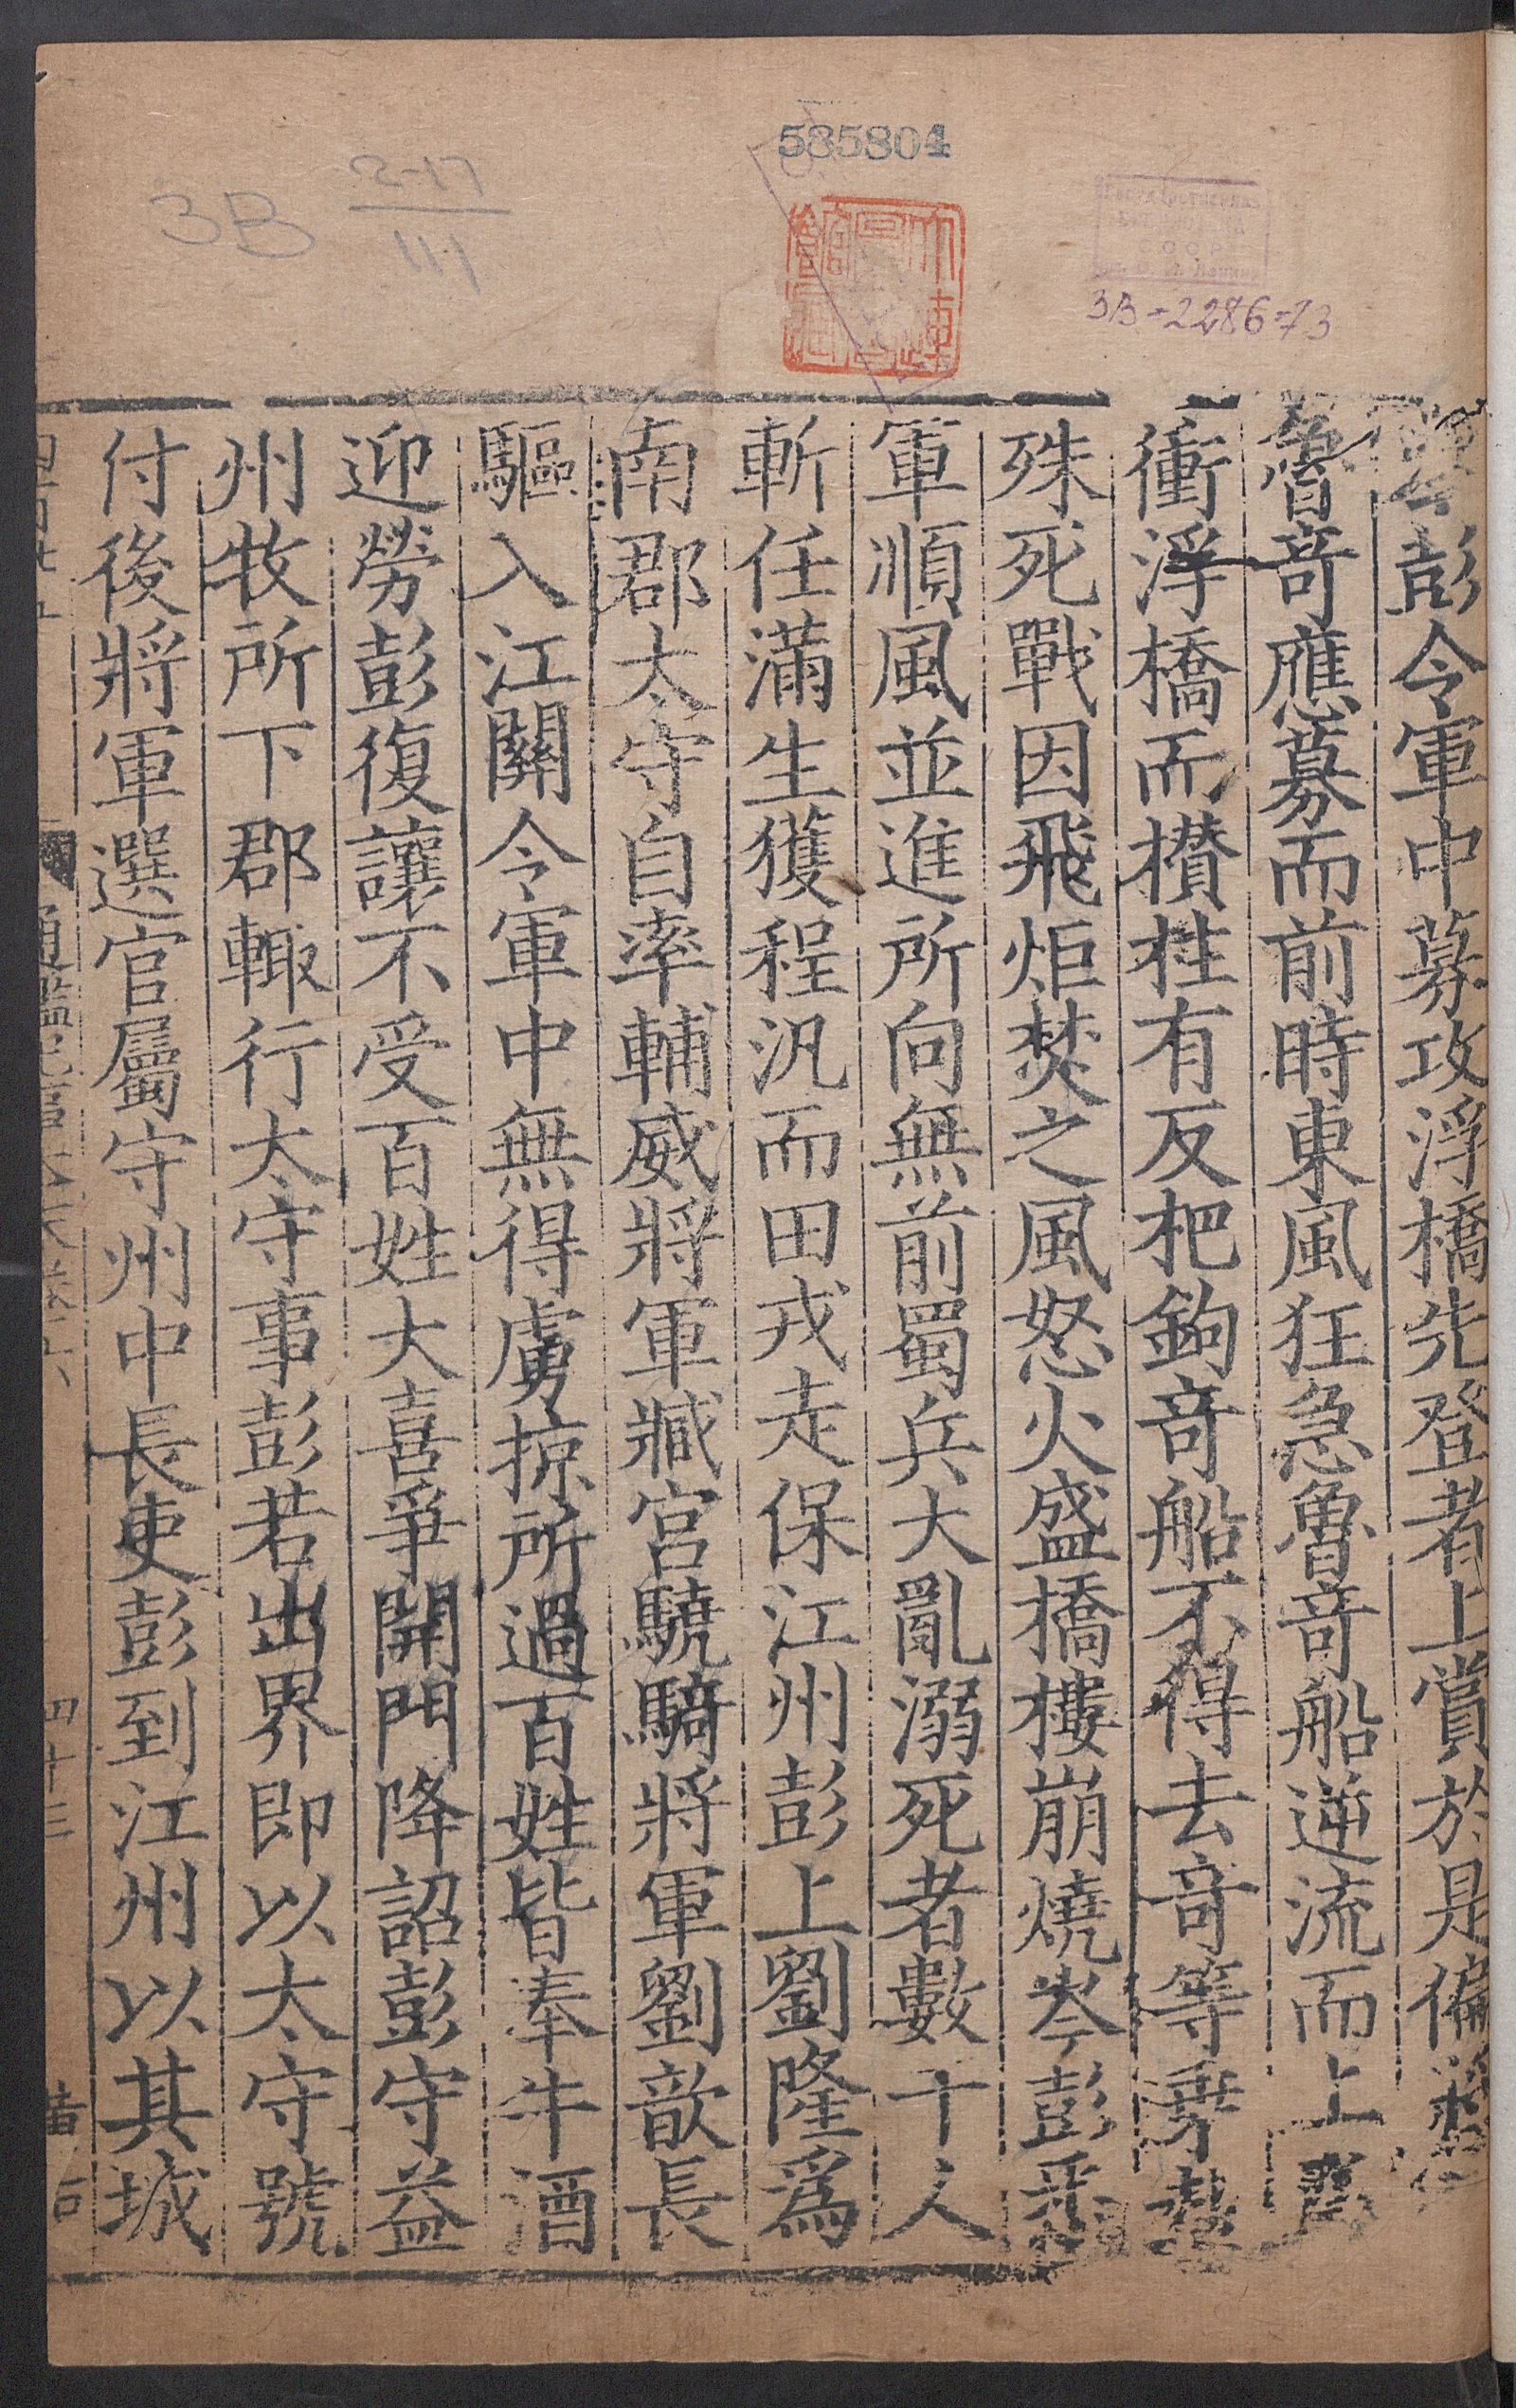 585804
3В 2-17
111
3В-2286-73
彭令軍中募攻浮橋先登者上賞於是偏
魯奇應募而前時東風狂急魯奇船逆流而上
衝浮橋而橕柱有反杷鉤奇船不得去奇等乗
殊死戰因飛炬焚之風怒火盛橋樓崩燒岑彭悉
軍順風並進所向無前蜀兵大亂溺死者數千人
斬任滿生獲程汎而田戎走保江州彭上劉隆爲
南郡太守自率輔威將軍臧宮驍騎將軍劉歆長
驅入江關令軍中無得虜掠所過百姓皆奉牛酒
迎勞彭復讓不受百姓大喜爭開門降詔彭守益
州牧所下郡輙行太守事彭若出界即以太守號
付後將軍選官屬守州中長吏彭到江州以其城
四十三